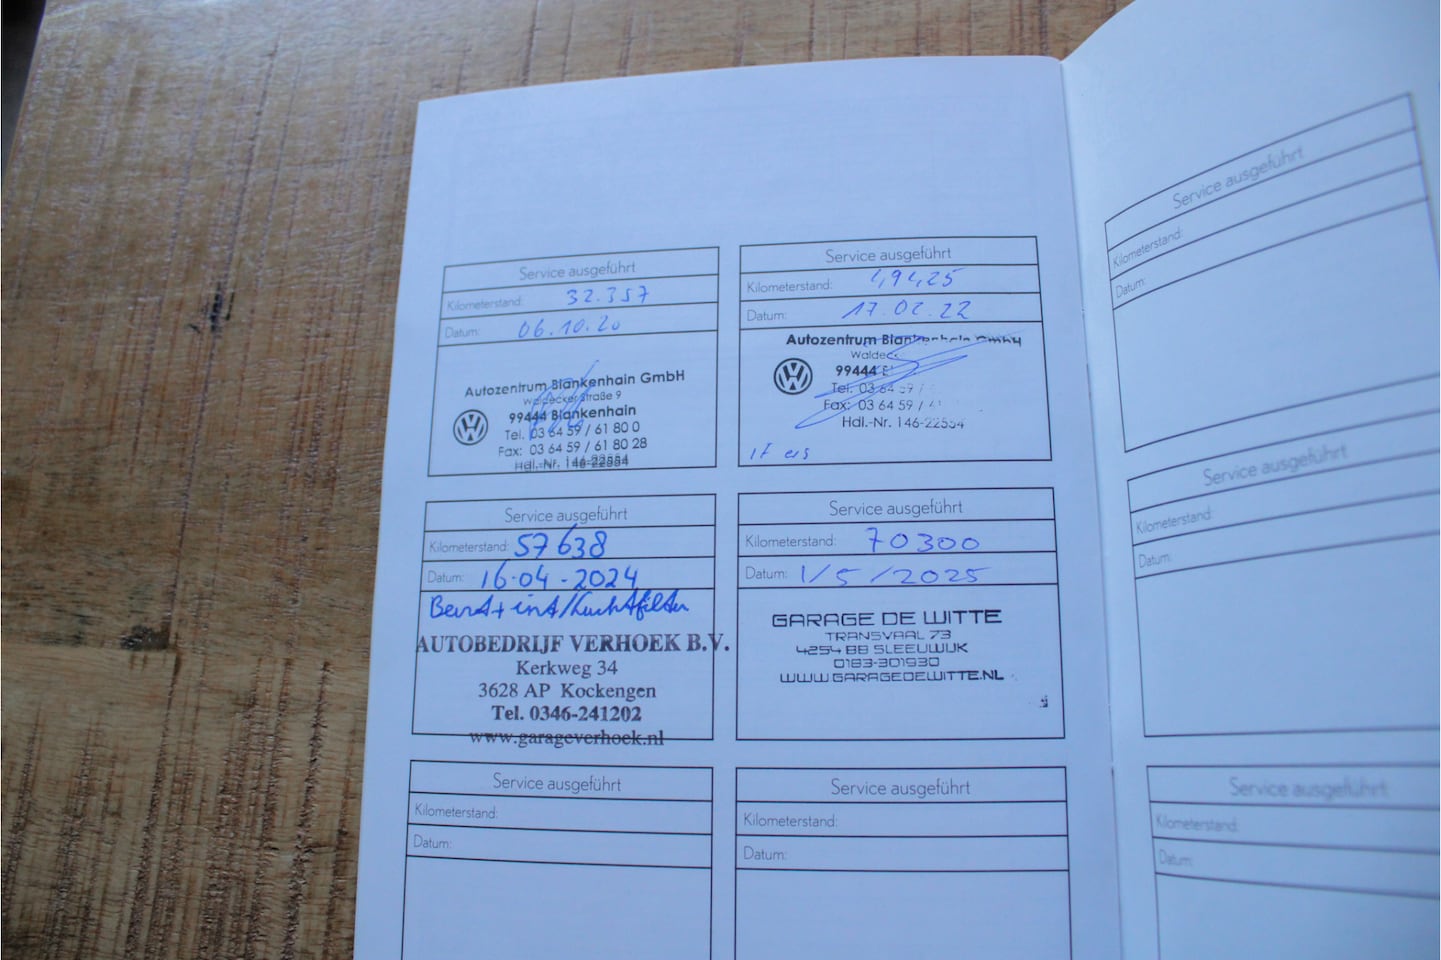 Service ausgeführt
Kilometerstand: 32.357
Datum: 06.10.20
Autozentrum Blankenhain GmbH
Waldecker Straße 9
99444 Blankenhain
Tel. 03 64 59 / 61 80 0
Fax: 03 64 59 / 61 80 28
Hdl.-Nr. 146-22554
Service ausgeführt
Kilometerstand: 49425
Datum: 17.02.22
Autozentrum Blankenhain GmbH
Waldeck
99444 Bl
Tel. 03 64 59 /
Fax: 03 64 59 /
Hdl.-Nr. 146-22554
Service ausgeführt
Kilometerstand: 57638
Datum: 16-04-2024
Beurt + int/Luchtfilter
AUTOBEDRIJF VERHOEK B.V.
Kerkweg 34
3628 AP Kockengen
Tel. 0346-241202
www.garageverhoek.nl
Service ausgeführt
Kilometerstand: 70300
Datum: 1/5/2025
GARAGE DE WITTE
TRANSVAAL 73
4254 BB SLEEUWIJK
0183-301930
WWW.GARAGEDEWITTE.NL
Service ausgeführt
Kilometerstand:
Datum:
Service ausgeführt
Kilometerstand:
Datum:
Service ausgeführt
Kilometerstand:
Datum:
Service ausgeführt
Kilometerstand:
Datum:
Service ausgeführt
Kilometerstand:
Datum: